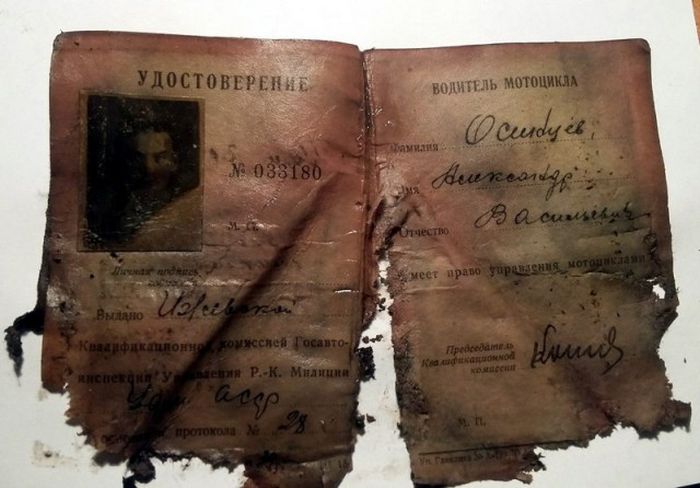 УДОСТОВЕРЕНИЕ
№ 033180
М. П.
Личная подпись
Выдано Ижевской
Квалификационной комиссией Госавто-
инспекции Управления Р.-К. Милиции
Удм АССР
протокола № 28
ВОДИТЕЛЬ МОТОЦИКЛА
Фамилия
Имя Александр
Отчество Васильевич
имеет право управления мотоциклами
Председатель
Квалификационной
комиссии
М. П.